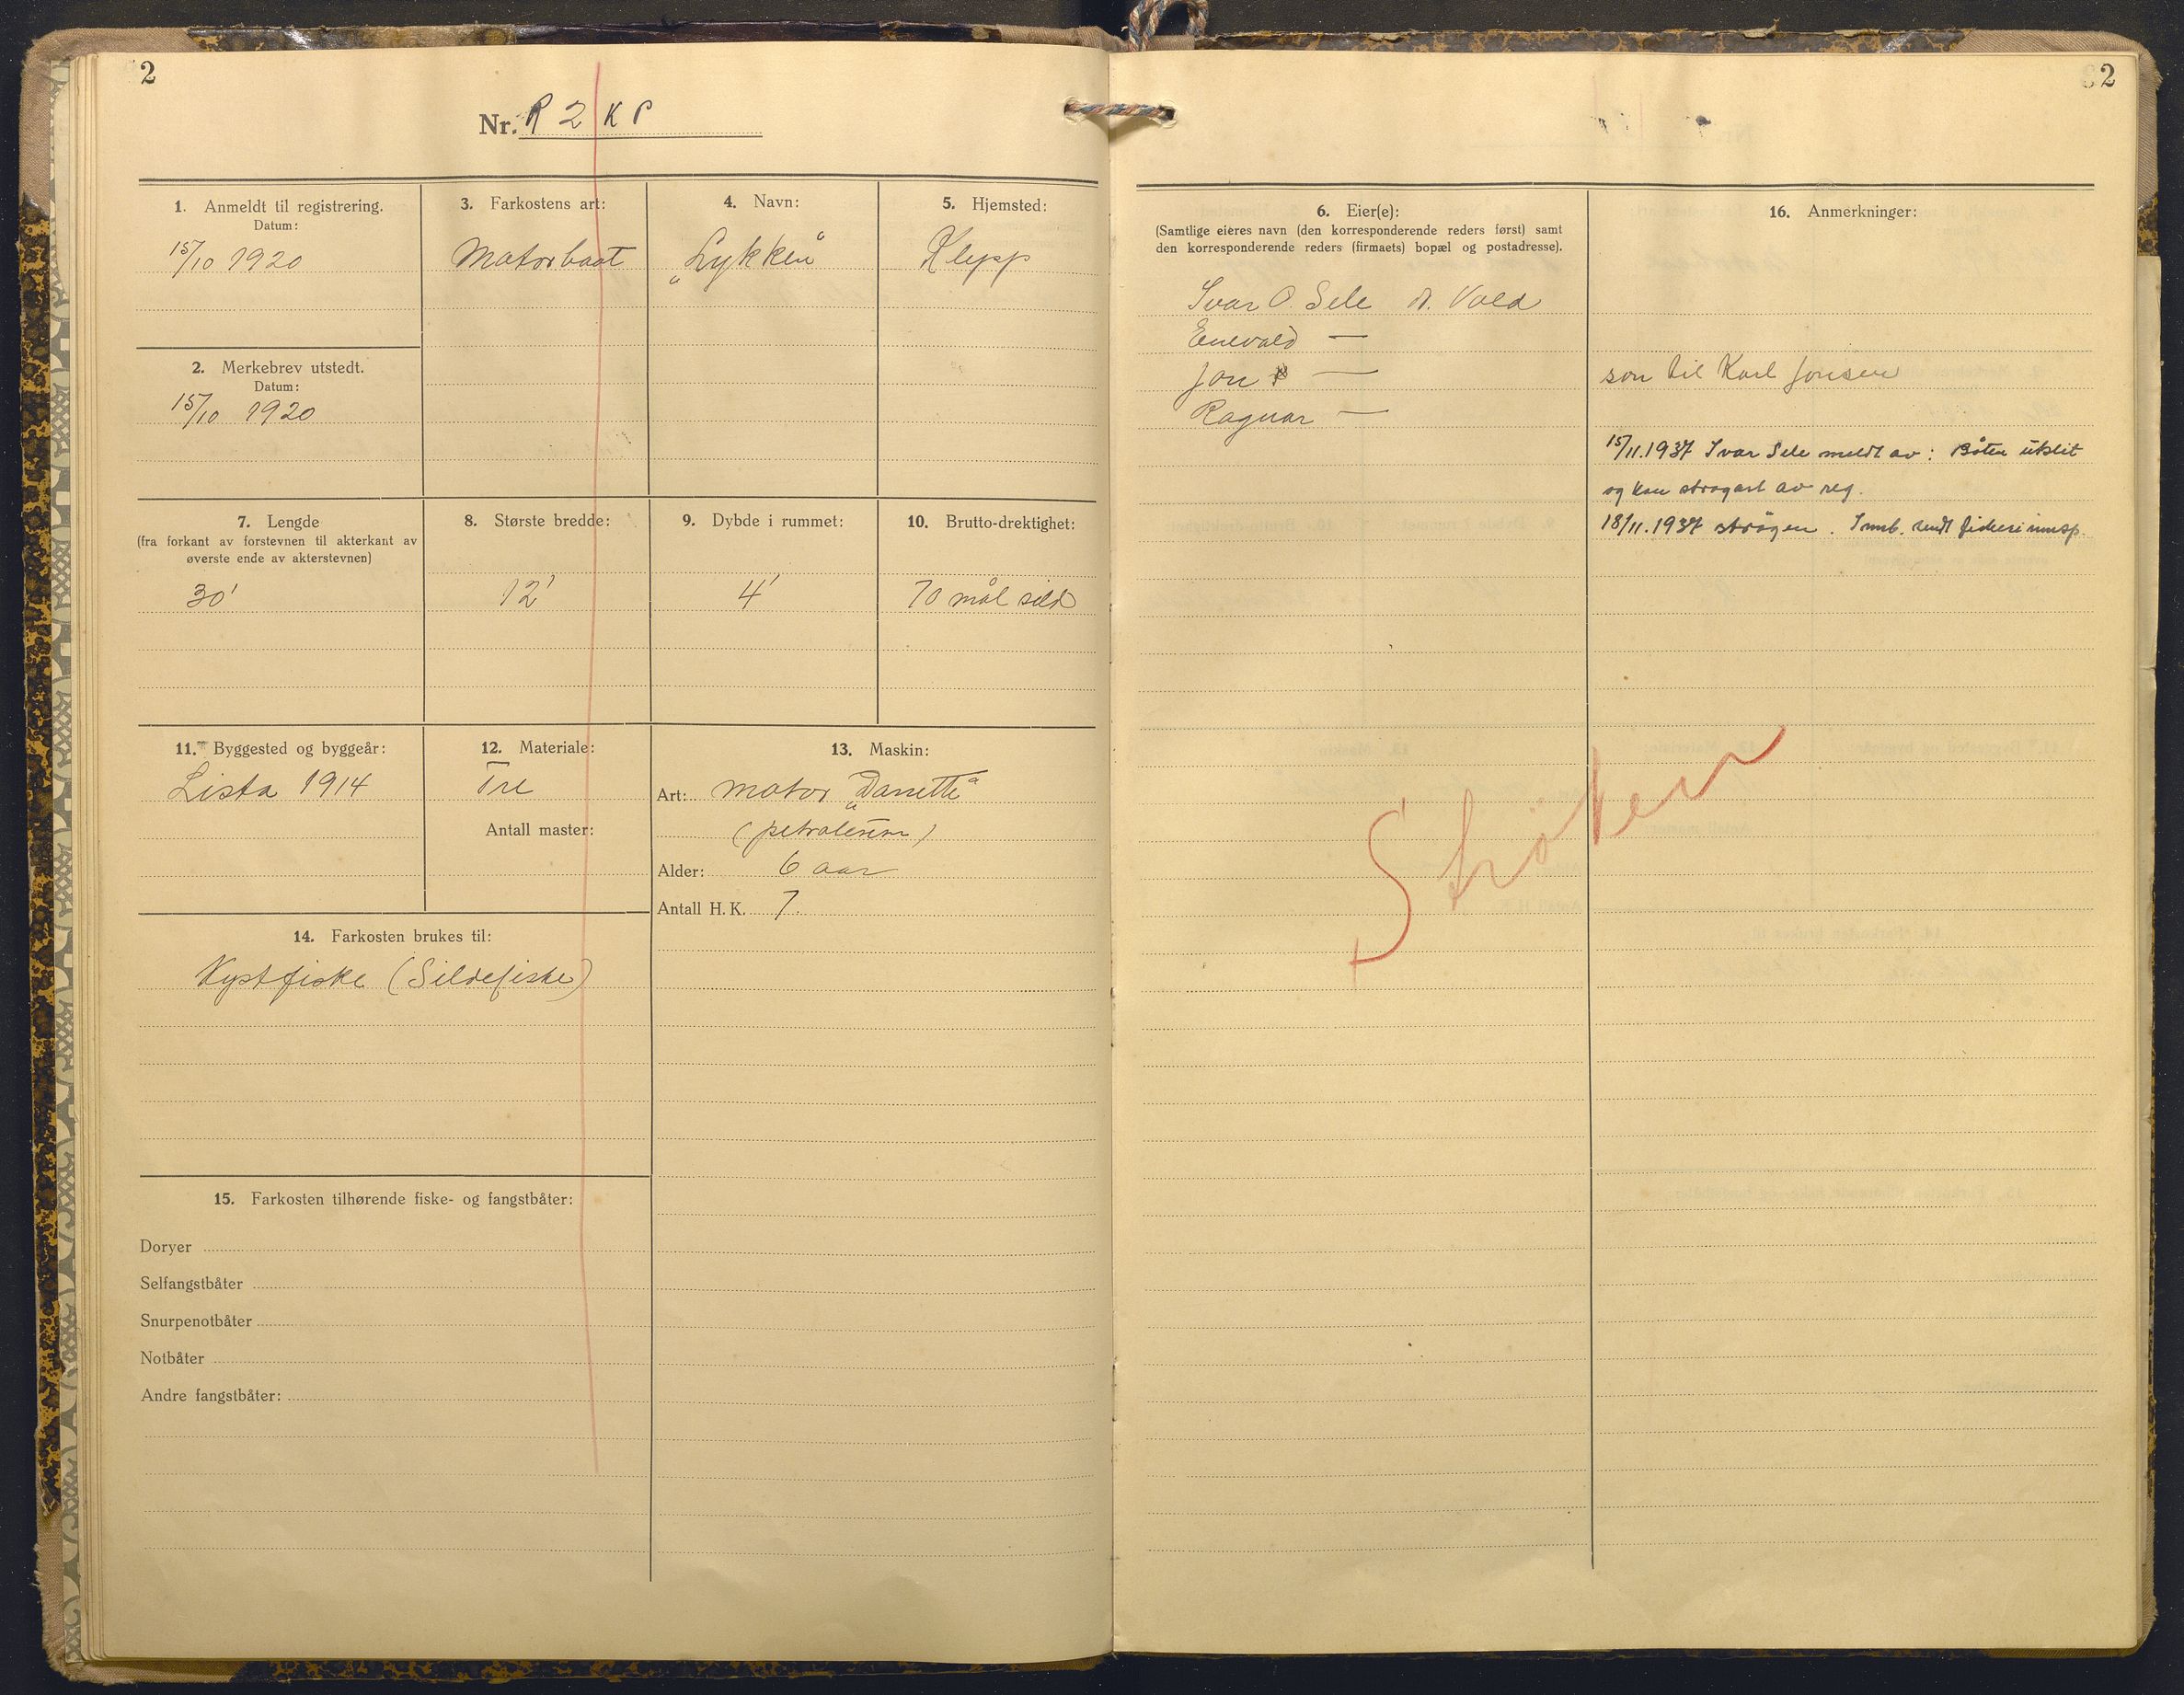 2
Nr. R 2 K P
1. Anmeldt til registrering.
Datum:
15/10 1920
2. Merkebrev utstedt.
Datum:
15/10 1920
3. Farkostens art:
Motorbaat
4. Navn:
„Lykken“
5. Hjemsted:
Klepp
7. Lengde
(fra forkant av forstevnen til akterkant av
øverste ende av akterstevnen)
30'
8. Største bredde:
12'
9. Dybde i rummet:
4'
10. Brutto-drektighet:
70 mål sild
11. Byggested og byggeår:
Lista 1914
12. Materiale:
Tre
Antall master:
13. Maskin:
Art: motor „Danette“
(petroleum)
Alder: 6 aar
Antall H. K. 7.
14. Farkosten brukes til:
Kystfiske (Sildefiske)
15. Farkosten tilhørende fiske- og fangstbåter:
Doryer
Selfangstbåter
Snurpenotbåter
Notbåter
Andre fangstbåter:
2
6. Eier(e):
(Samtlige eieres navn (den korresponderende reders først) samt
den korresponderende reders (firmaets) bopæl og postadresse).
Ivar O. Sele Vold
Enevald —
Jon —
Ragnar —
16. Anmerkninger:
son til Karl Jonsen
15/11.1937 Ivar Sele meldt av: Båten utslit
og kan strogast av reg.
18/11.1937 strøgen. Innb. sendt fiskeriinnsp.
Strøken